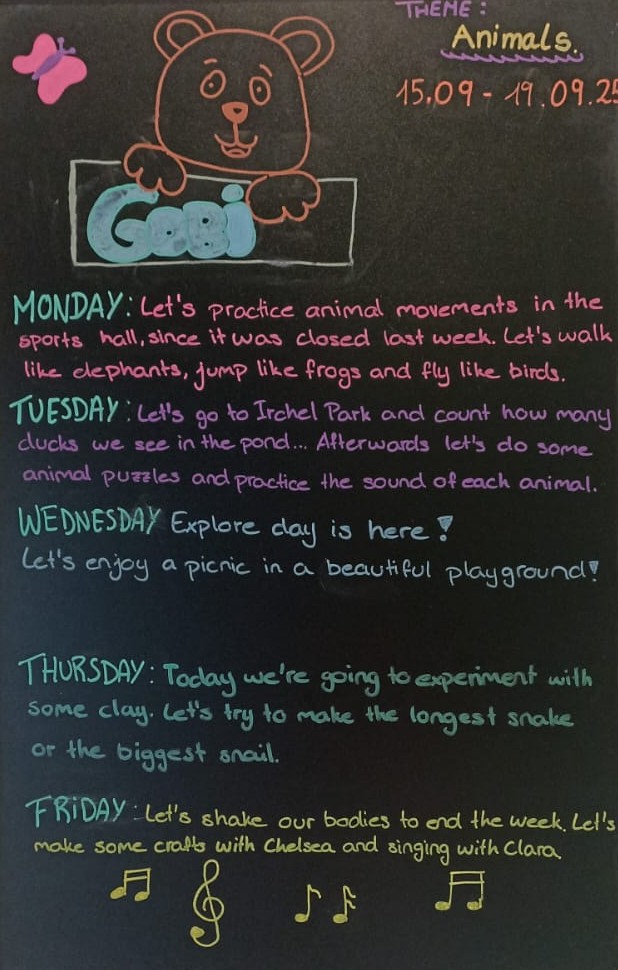 THEME:
Animals.
15.09 - 19.09.25
GoBi
MONDAY: Let's practice animal movements in the
sports hall, since it was closed last week. Let's walk
like elephants, jump like frogs and fly like birds.
TUESDAY: Let's go to Irchel Park and count how many
ducks we see in the pond... Afterwards let's do some
animal puzzles and practice the sound of each animal.
WEDNESDAY Explore day is here!
Let's enjoy a picnic in a beautiful playground!
THURSDAY: Today we're going to experiment with
some clay. Let's try to make the longest snake
or the biggest snail.
FRIDAY: Let's shake our bodies to end the week. Let's
make some crafts with Chelsea and singing with Clara.